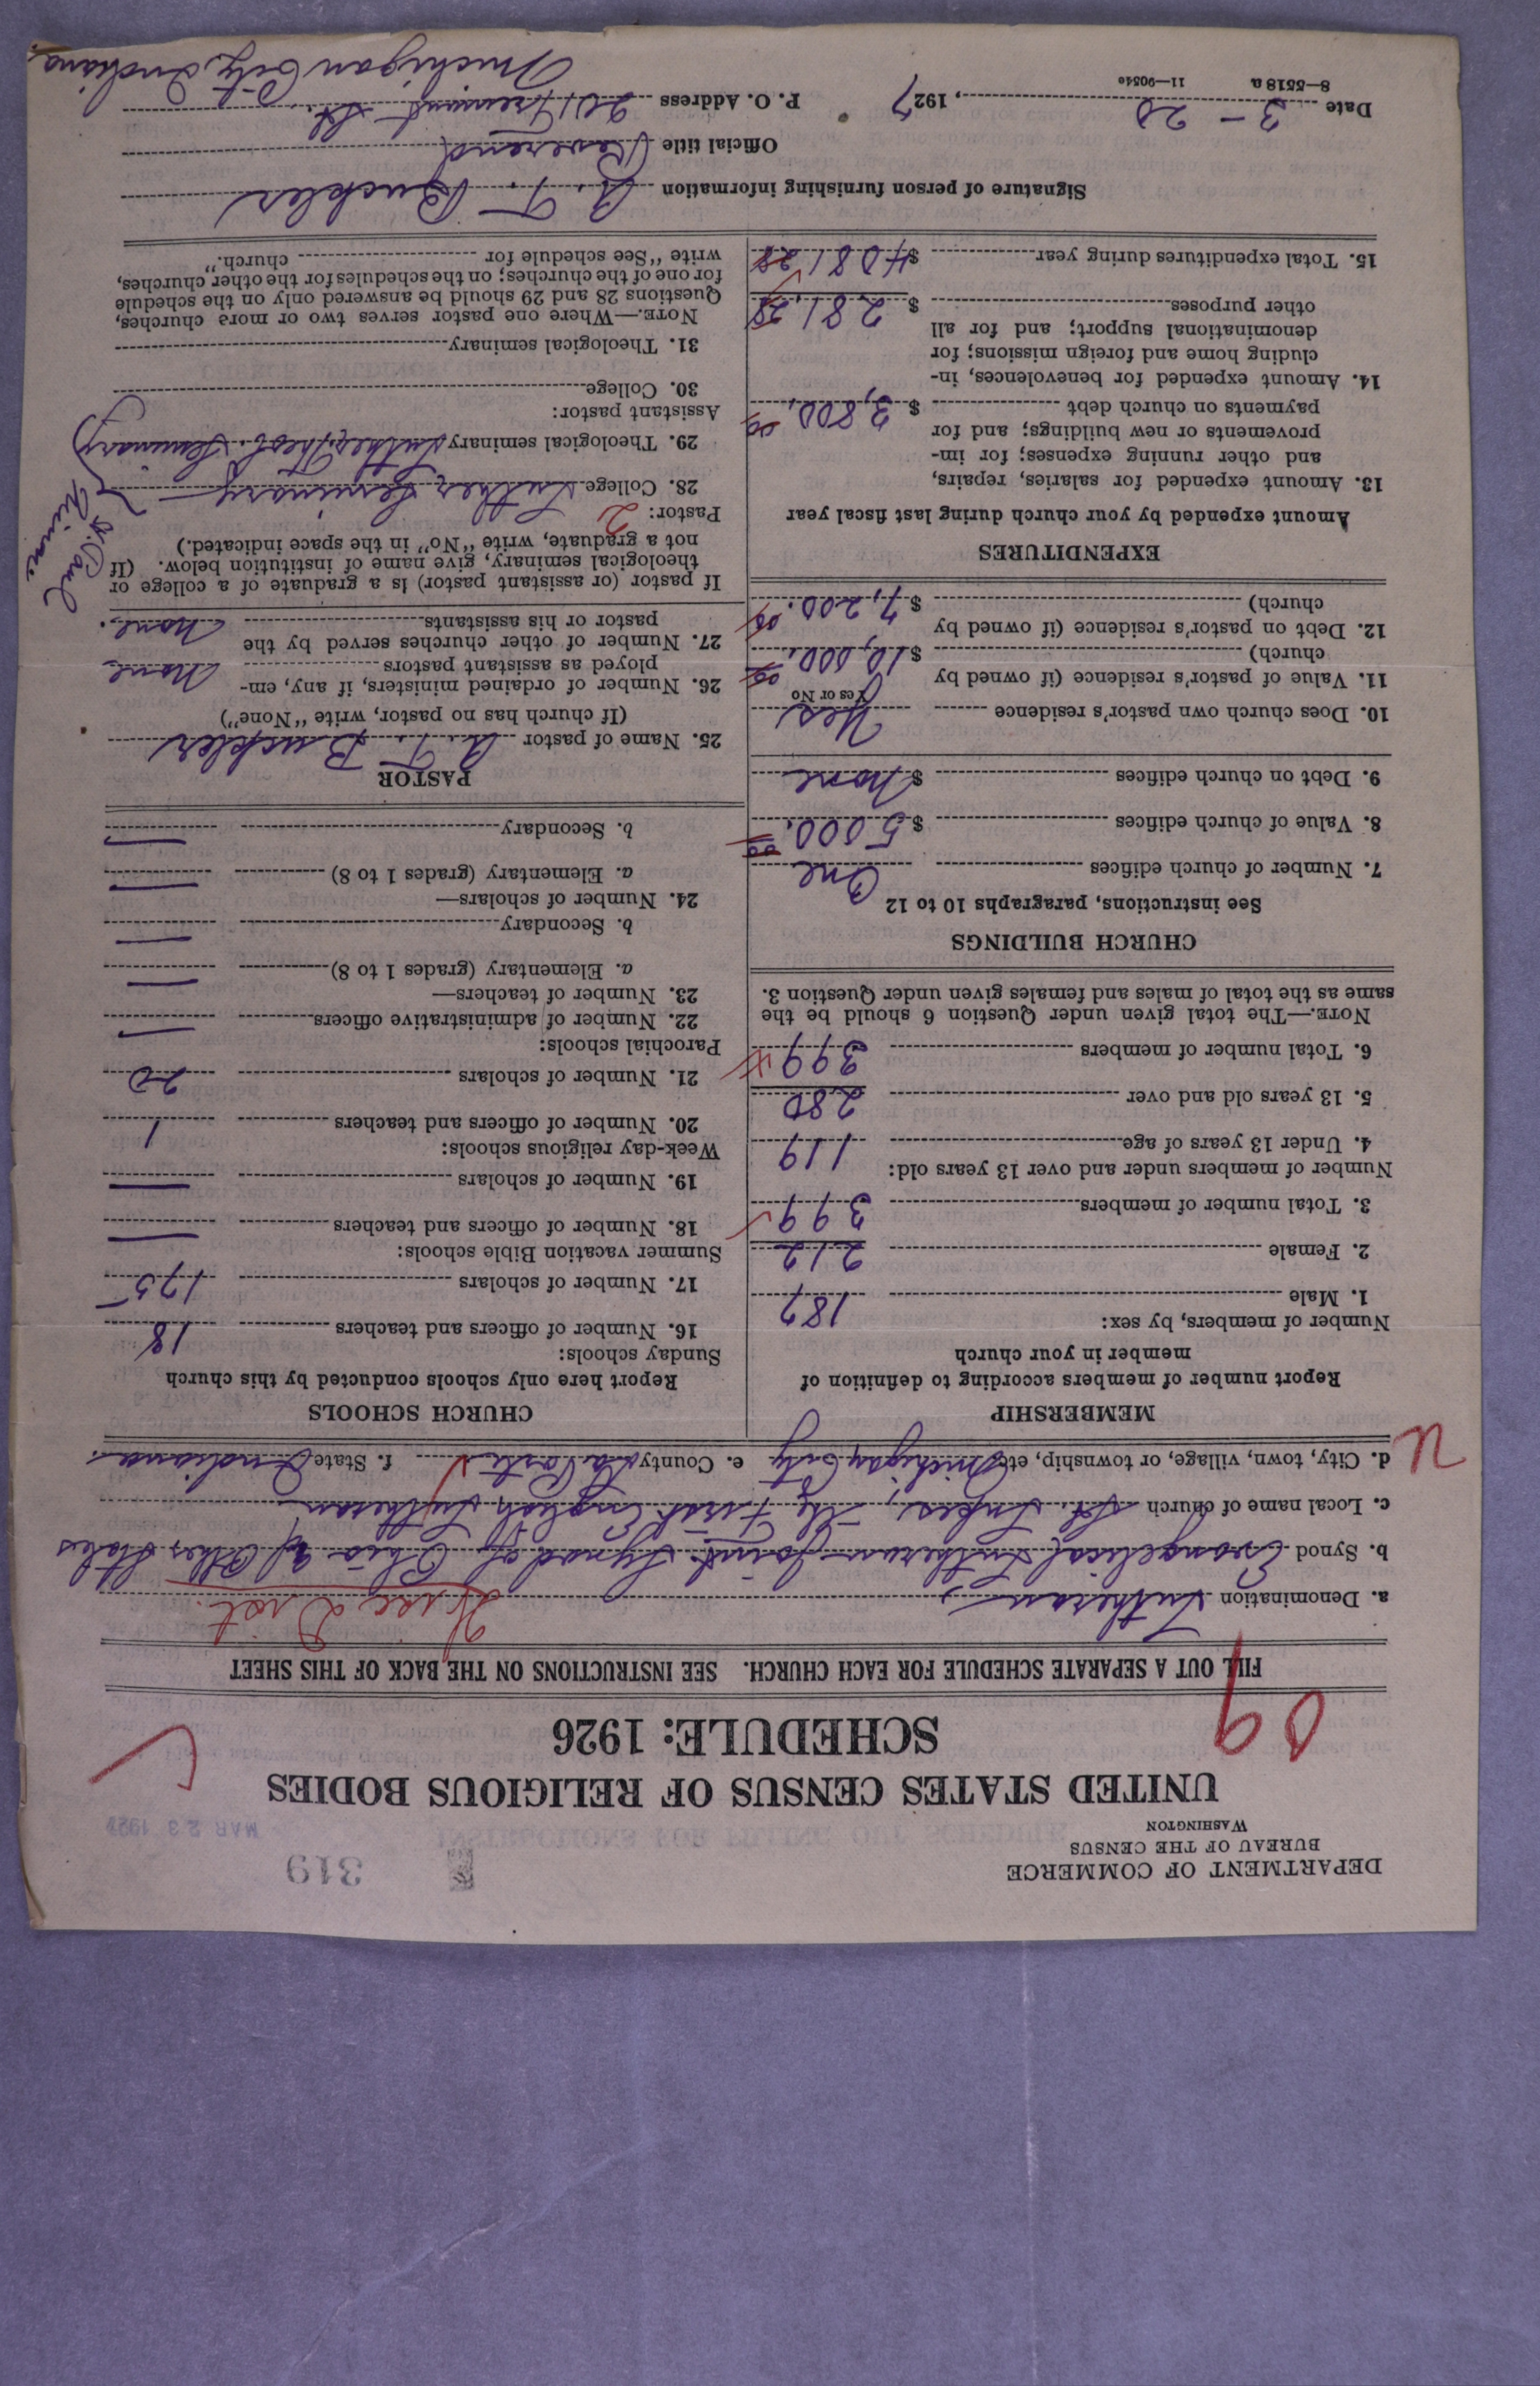 319
MAR 23 192
DEPARTMENT OF COMMERCE
BUREAU OF THE CENSUS
WASHINGTON
UNITED STATES CENSUS OF RELIGIOUS BODIES
SCHEDULE: 1926
09
FILL OUT A SEPARATE SCHEDULE FOR EACH CHURCH. SEE INSTRUCTIONS ON THE BACK OF THIS SHEET
a. Denomination Lutheran Dist.
b. Synod Evangelical Lutheran Joint Synod of Ohio & Other States
c. Local name of church St. Lukes, The First English Lutheran
d. City, town, village, or township, etc. Michigan City e. County La Porte f. State Indiana.
MEMBERSHIP
Report number of members according to definition of
member in your church
Number of members, by sex:
1. Male 187
2. Female 212
3. Total number of members 399
Number of members under and over 13 years old:
4. Under 13 years of age 119
5. 13 years old and over 280
6. Total number of members 399
NOTE.—The total given under Question 6 should be the
same as the total of males and females given under Question 3.
CHURCH BUILDINGS
See instructions, paragraphs 10 to 12
7. Number of church edifices One
8. Value of church edifices $ 5000.00
9. Debt on church edifices $ None
10. Does church own pastor's residence Yes
Yes or No
11. Value of pastor's residence (if owned by
church) $ 10,000.00
12. Debt on pastor's residence (if owned by
church) $ 7,200.00
EXPENDITURES
Amount expended by your church during last fiscal year
13. Amount expended for salaries, repairs,
and other running expenses; for im-
provements or new buildings; and for
payments on church debt $ 3,800.00
14. Amount expended for benevolences, in-
cluding home and foreign missions; for
denominational support; and for all
other purposes $ 281.28
15. Total expenditures during year $ 4081.28
CHURCH SCHOOLS
Report here only schools conducted by this church
Sunday schools:
16. Number of officers and teachers 18
17. Number of scholars 175
Summer vacation Bible schools:
18. Number of officers and teachers —
19. Number of scholars —
Week-day religious schools:
20. Number of officers and teachers 1
21. Number of scholars 20
Parochial schools:
22. Number of administrative officers —
23. Number of teachers—
a. Elementary (grades 1 to 8) —
b. Secondary —
24. Number of scholars—
a. Elementary (grades 1 to 8) —
b. Secondary —
PASTOR
25. Name of pastor A. T. Buckler
(If church has no pastor, write "None")
26. Number of ordained ministers, if any, em-
ployed as assistant pastors None
27. Number of other churches served by the
pastor or his assistants None.
If pastor (or assistant pastor) is a graduate of a college or
theological seminary, give name of institution below. (If
not a graduate, write "No" in the space indicated.)
Pastor: 2
28. College Luther Seminary
29. Theological seminary Luther Theol. Seminary
St. Paul
Minn.
Assistant pastor:
30. College
31. Theological seminary
NOTE.—Where one pastor serves two or more churches,
Questions 28 and 29 should be answered only on the schedule
for one of the churches; on the schedules for the other churches,
write "See schedule for church."
Signature of person furnishing information A. T. Buckler
Official title Reverend
Date 3 - 20, 1927 P. O. Address 201 Fremont St.
Michigan City, Indiana
8—5518 a 11—9054e